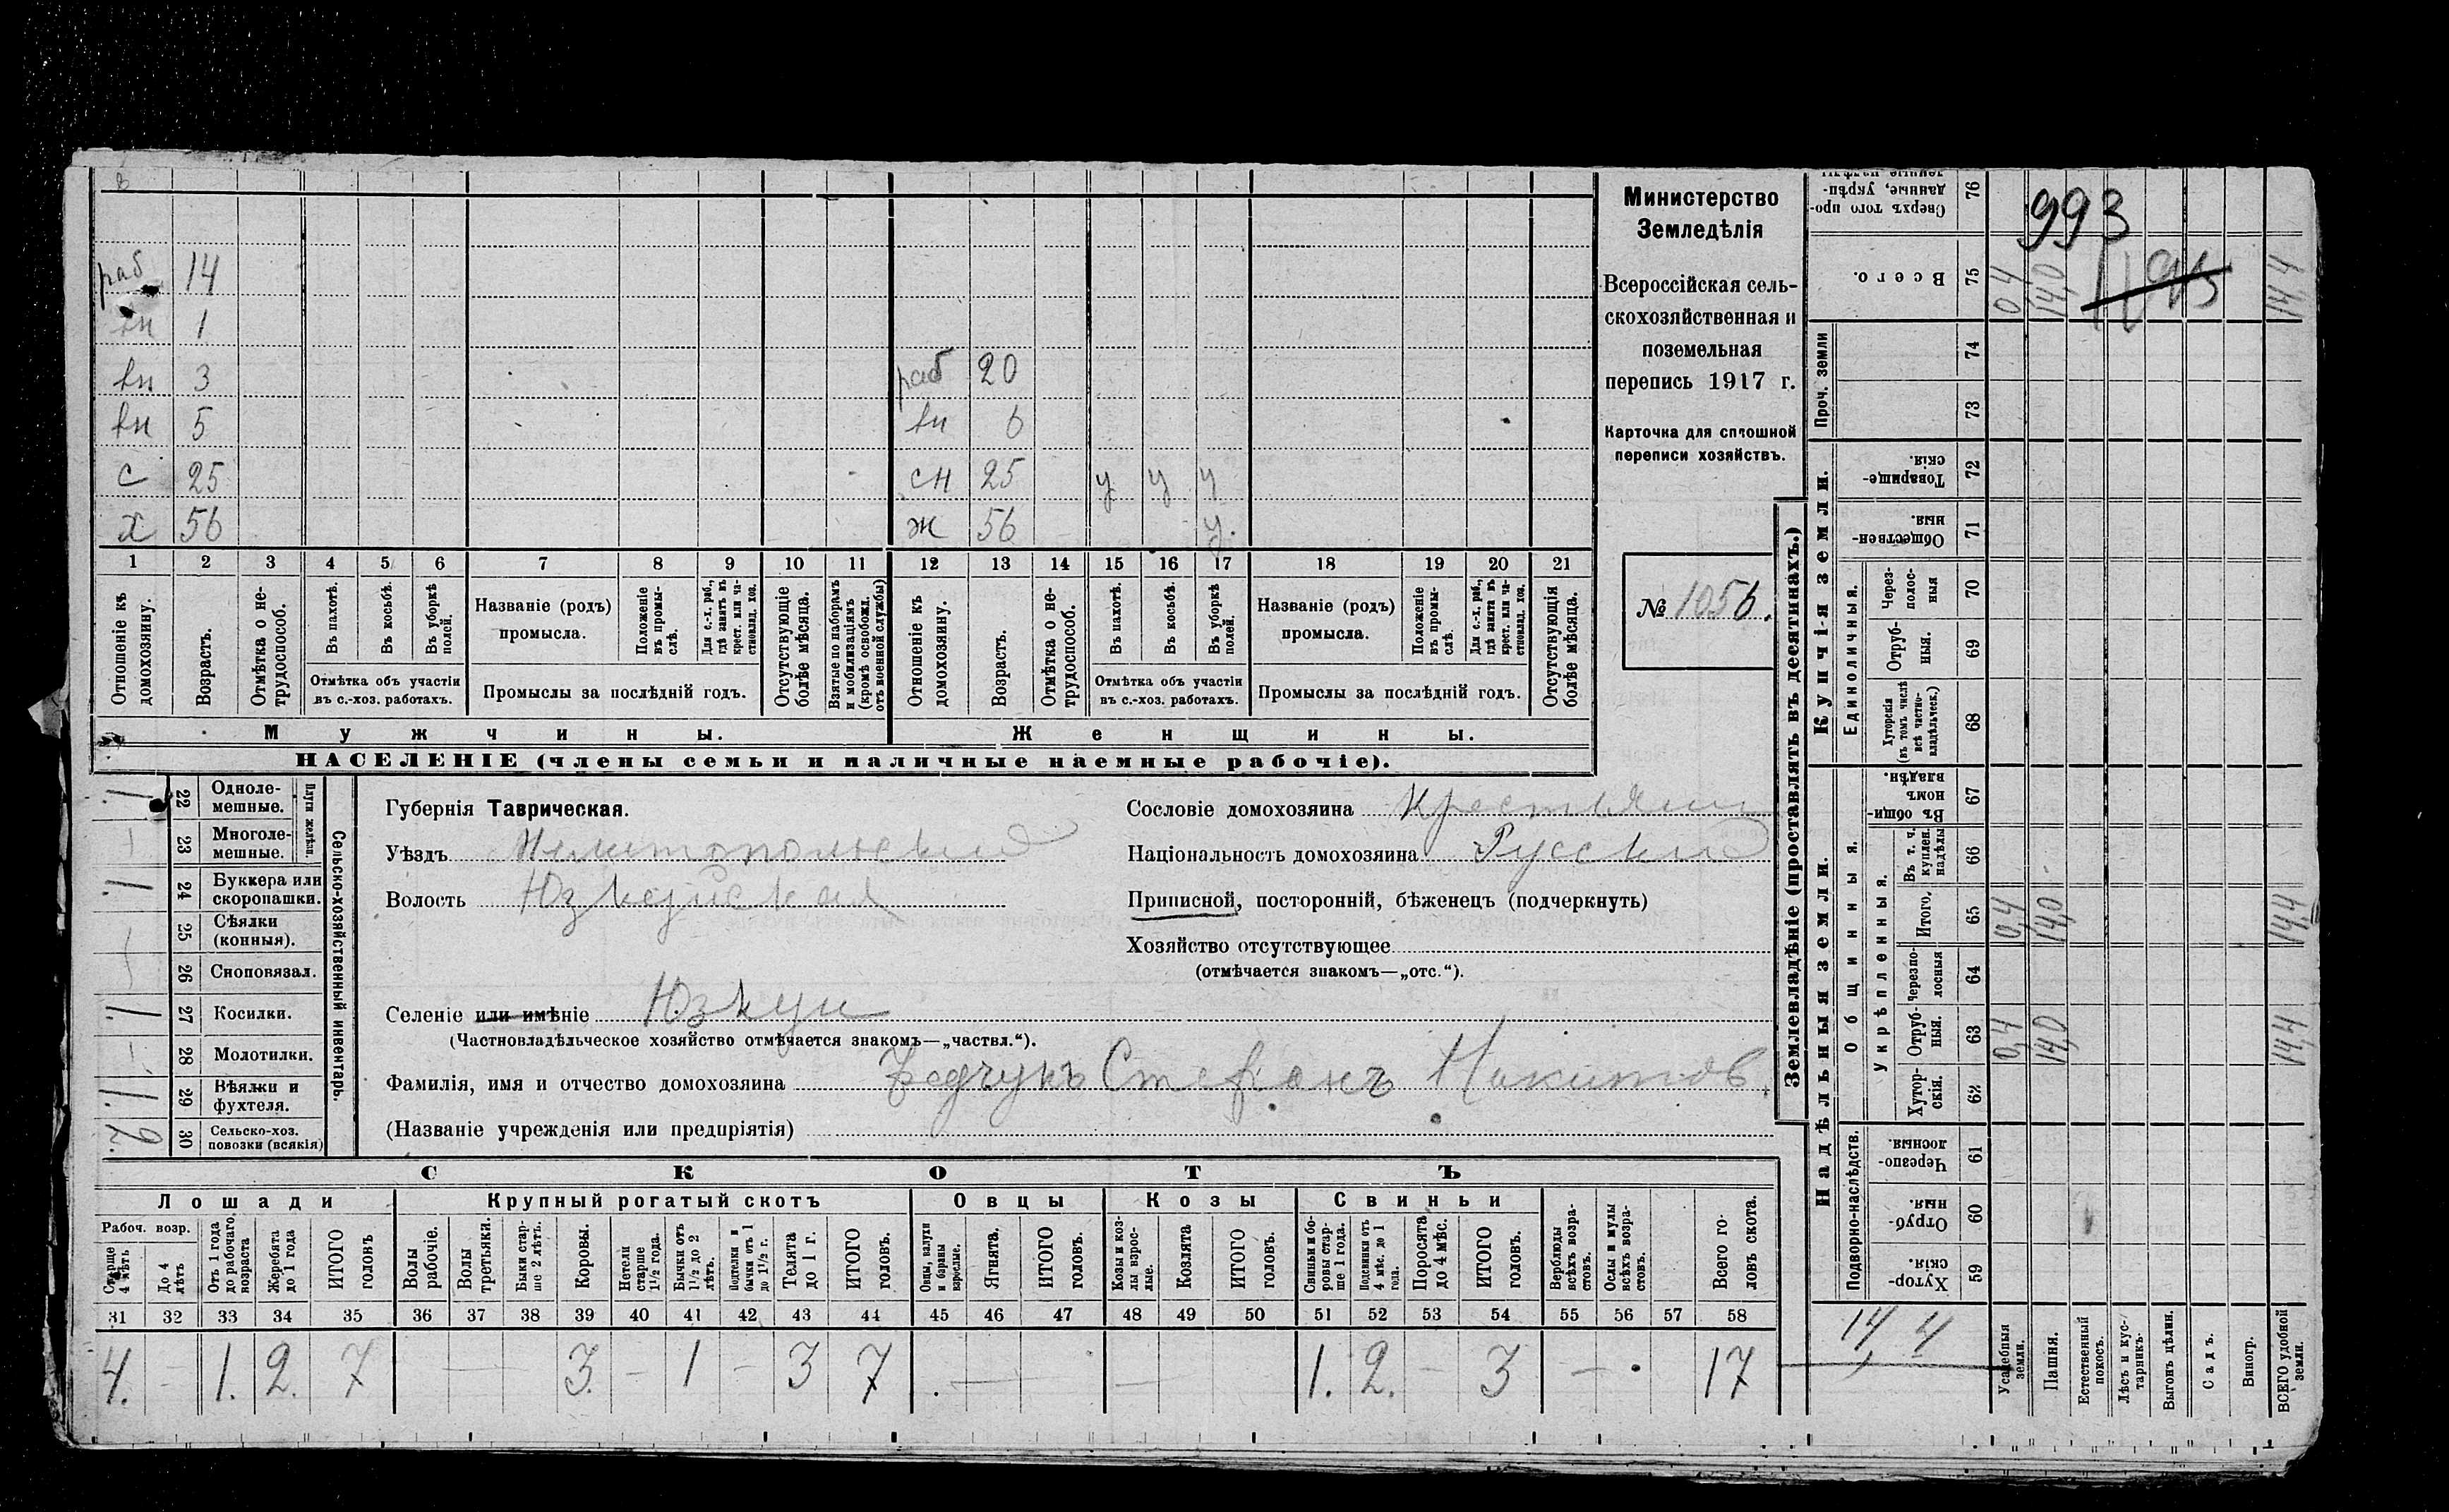 раб 14
вн 1
вн 3 раб 20
вн 5 вн 6
с 25 сн 25 у у у
х 56 ж 56 у.
1 2 3 4 5 6 7 8 9 10 11 12 13 14 15 16 17 18 19 20 21
Отношеніе къ домохозяину.
Возрастъ.
Отмѣтка о нетрудоспособ.
Въ пахотѣ.
Въ косьбѣ.
Въ уборкѣ полей.
Отмѣтка объ участіи въ с.-хоз. работахъ.
Названіе (родъ) промысла.
Положеніе въ промыслѣ.
Для с.-х. раб., гдѣ занятъ въ крест. или частновлад. хоз.
Промыслы за послѣдній годъ.
Отсутствующіе болѣе мѣсяца.
Взятые по наборамъ и мобилизаціямъ (кромѣ освобожд. отъ военной службы)
Отношеніе къ домохозяину.
Возрастъ.
Отмѣтка о нетрудоспособ.
Въ пахотѣ.
Въ косьбѣ.
Въ уборкѣ полей.
Отмѣтка объ участіи въ с.-хоз. работахъ.
Названіе (родъ) промысла.
Положеніе въ промыслѣ.
Для с.-х. раб., гдѣ занята въ крест. или частновлад. хоз.
Промыслы за послѣдній годъ.
Отсутствующія болѣе мѣсяца.
Мужчины. Женщины.
НАСЕЛЕНІЕ (члены семьи и наличные наемные рабочіе).
Министерство
Земледѣлія
Всероссійская сель-
скохозяйственная и
поземельная
перепись 1917 г.
Карточка для сплошной
переписи хозяйствъ.
№ 1056.
Сельско-хозяйственный инвентарь.
Плуги желѣзн.
1 22 Однолемешные.
23 Многолемешные.
1 24 Буккера или скоропашки.
25 Сѣялки (конныя).
26 Сноповязал.
1 27 Косилки.
28 Молотилки.
1 29 Вѣялки и фухтеля.
2. 30 Сельско-хоз. повозки (всякія)
Губернія Таврическая.
Уѣздъ Мелитопольскій
Волость Юзкуйская
Сословіе домохозяина Крестьянин
Національность домохозяина Русскій
Приписной, посторонній, бѣженецъ (подчеркнуть)
Хозяйство отсутствующее
(отмѣчается знакомъ—„отс.“).
Селеніе или имѣніе Юзкуи
(Частновладѣльческое хозяйство отмѣчается знакомъ—„частвл.“).
Фамилія, имя и отчество домохозяина Федчунъ Стефанъ Никитов.
(Названіе учрежденія или предпріятія)
СКОТЪ
Лошади Крупный рогатый скотъ Овцы Козы Свиньи
Рабоч. возр.
Старше 4 лѣтъ
До 4 лѣтъ
Отъ 1 года до рабочаго возраста
Жеребята до 1 года
ИТОГО головъ
Волы рабочіе.
Волы третьяки.
Быки старше 2 лѣтъ.
Коровы.
Нетели старше 1½ года.
Бычки отъ 1½ до 2 лѣтъ.
Подтелки и бычки отъ 1 до 1½ г.
Телята до 1 г.
ИТОГО головъ.
Овцы, валухи и бараны взрослые.
Ягнята.
ИТОГО головъ.
Козы и козлы взрослые.
Козлята
ИТОГО головъ.
Свиньи и боровы старше 1 года.
Подсвинки отъ 4 мѣс. до 1 года.
Поросята до 4 мѣс.
ИТОГО головъ.
Верблюды всѣхъ возрастовъ.
Ослы и мулы всѣхъ возрастовъ.
Всего головъ скота.
31 32 33 34 35 36 37 38 39 40 41 42 43 44 45 46 47 48 49 50 51 52 53 54 55 56 57 58
4. – 1. 2. 7 — 3. – 1 – 3 7 — — 1. 2. – 3 – 17
Землевладѣніе (проставлять въ десятинахъ.)
Купчія земли.
Надѣльныя земли.
Проч. земли
Единоличныя.
Общинныя.
Укрѣпленныя.
Подворно-наслѣдств.
Сверхъ того проданные, укрѣпленные надѣлы 76
993
Всего. 75 0,4 14,0 14,4
74
73
Товарищескія. 72
Общественныя. 71
Черезполосныя 70
Отрубныя. 69
Хуторскія (въ томъ числѣ всѣ частновладѣльческ.) 68
Въ общинномъ владѣн. 67
Въ т. ч. куплен. надѣлы 66
Итого. 65 0,4 14,0 14,4
Черезполосныя 64
Отрубныя. 63 0,4 14,0 14,4
Хуторскія. 62
Черезполосныя. 61
Отрубныя. 60
Хуторскія. 59
14,4
Усадебныя земли.
Пашня.
Естественный покосъ.
Лѣсъ и кустарникъ.
Выгонъ цѣлин.
Садъ.
Виногр.
ВСЕГО удобной земли.